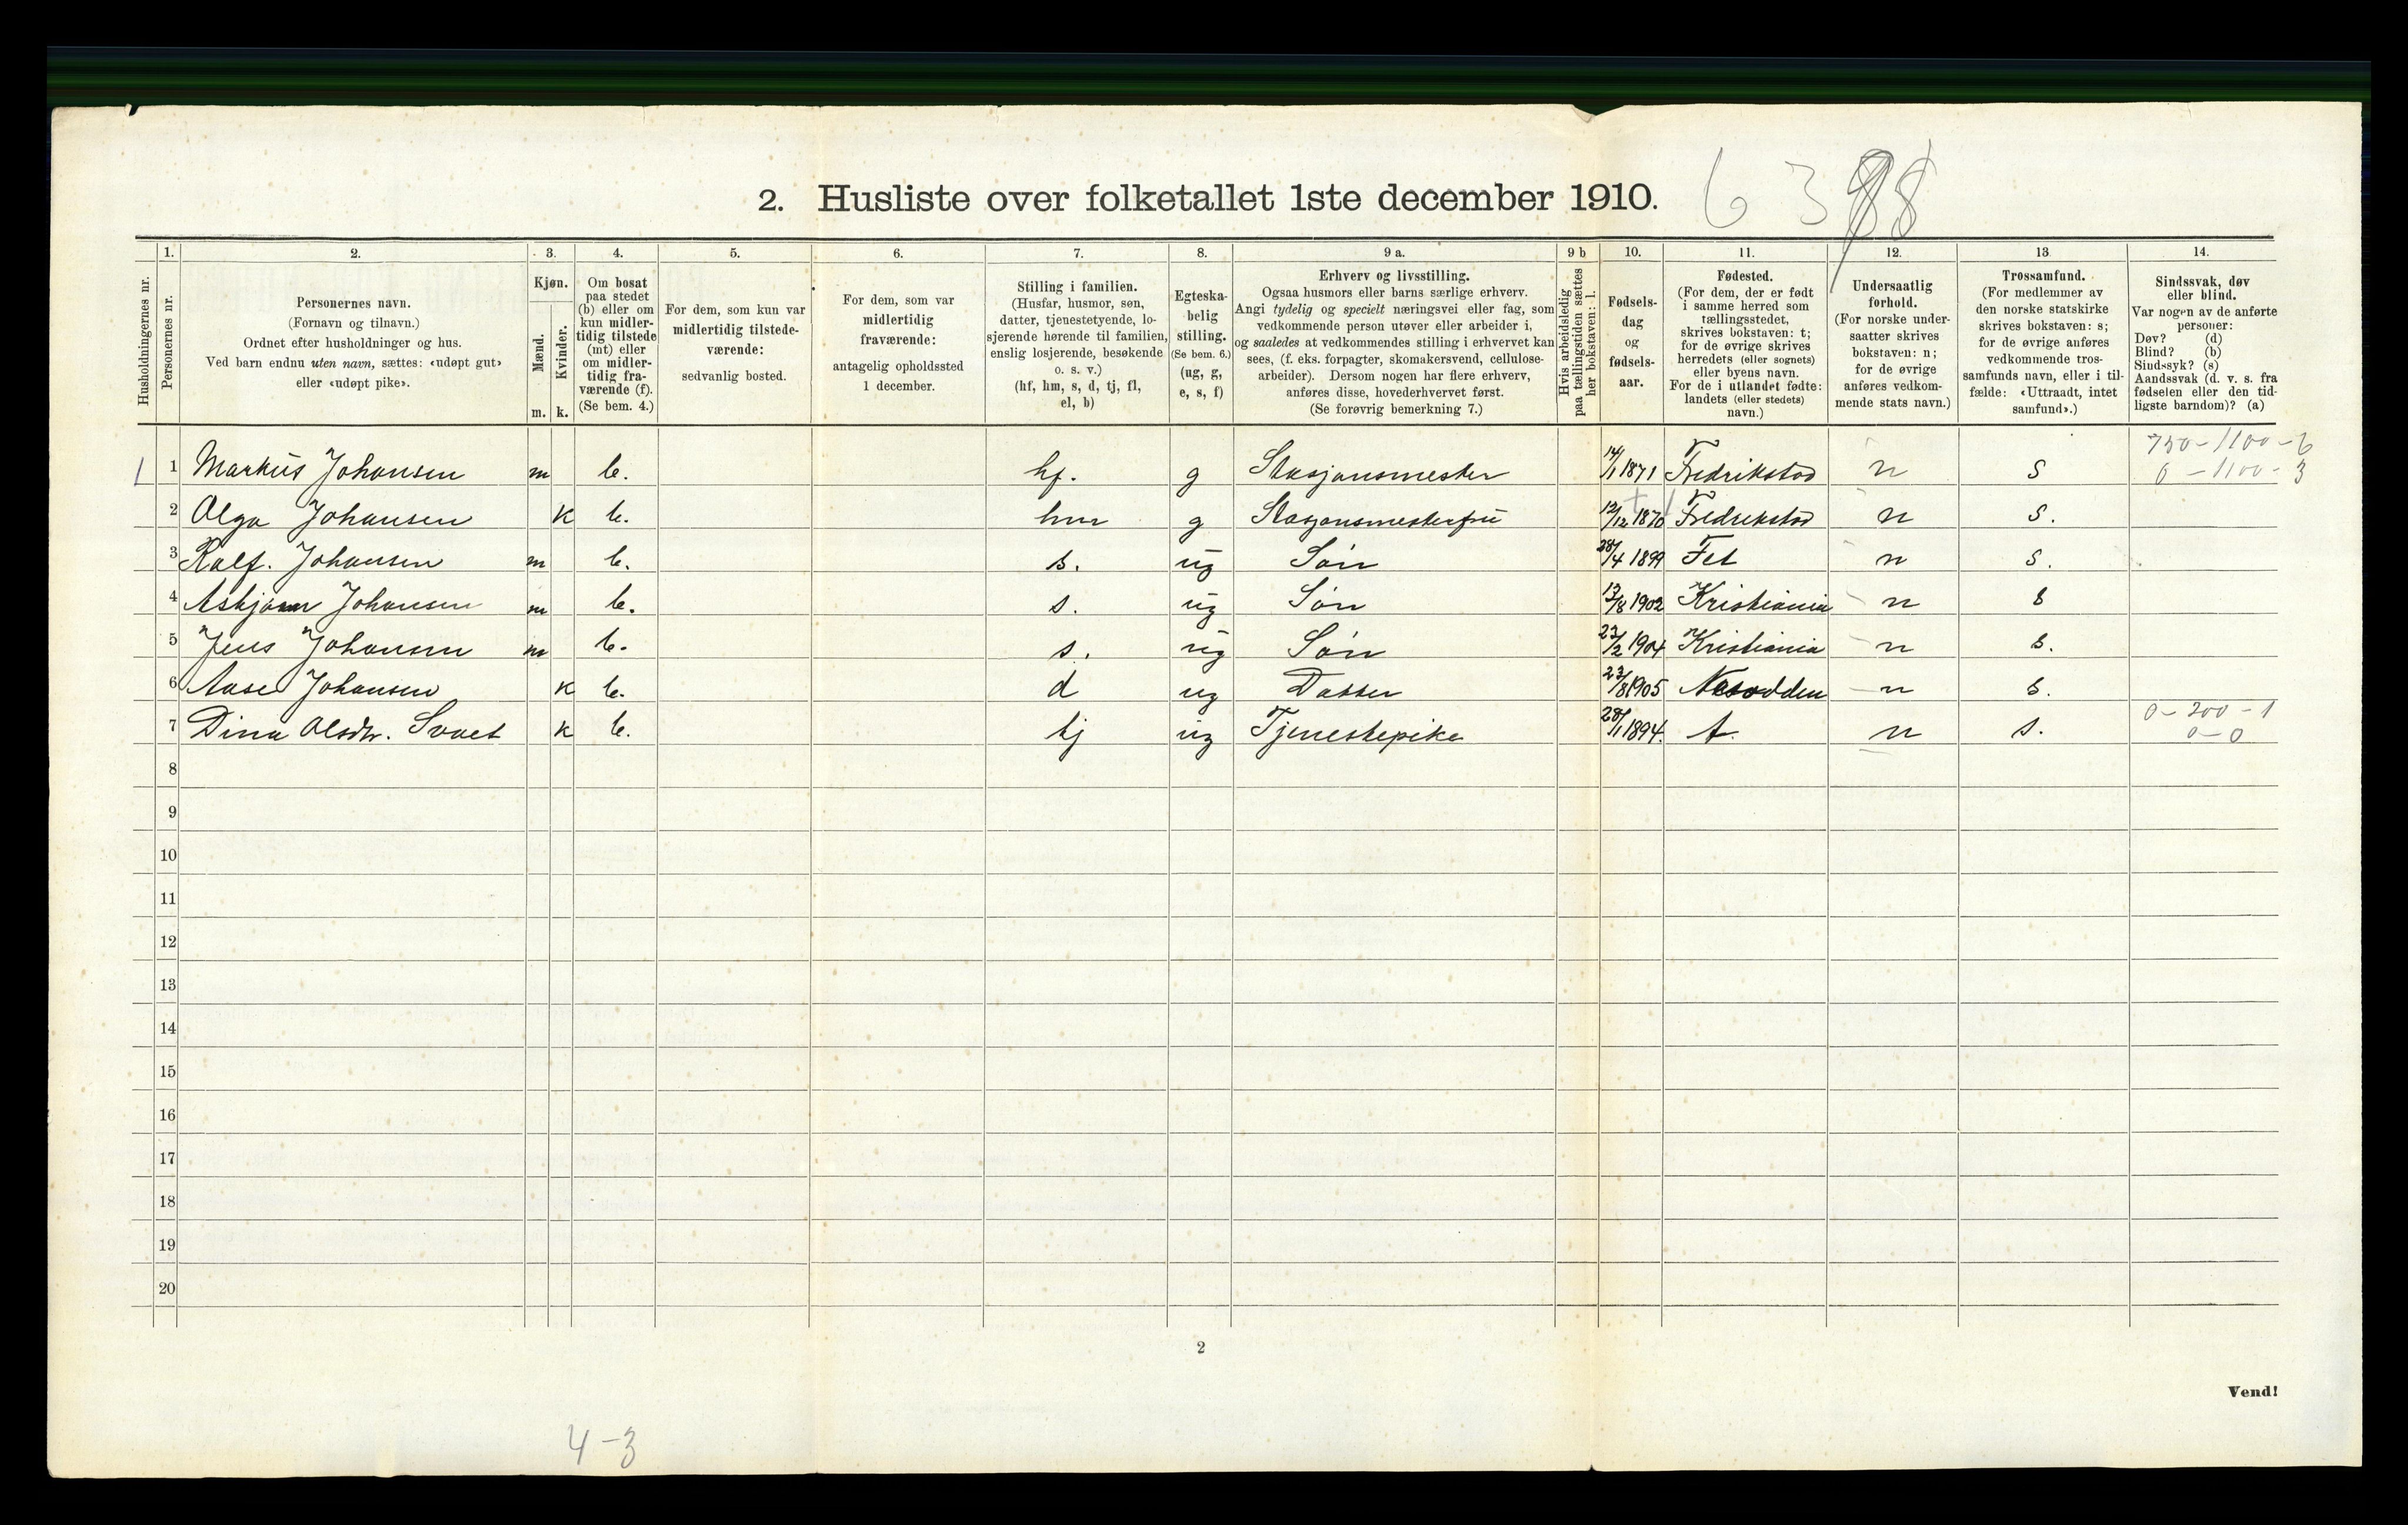 2. Husliste over folketallet 1ste december 1910. 6 3 88
Husholdningernes nr.
1.
Personernes nr.
2.
Personernes navn.
(Fornavn og tilnavn.)
Ordnet efter husholdninger og hus.
Ved barn endnu uten navn, sættes: «udøpt gut»
eller «udøpt pike».
3.
Kjøn.
Mænd.
Kvinder.
m. k.
4.
Om bosat
paa stedet
(b) eller om
kun midler-
tidig tilstede
(mt) eller
om midler-
tidig fra-
værende (f).
(Se bem. 4.)
5.
For dem, som kun var
midlertidig tilstede-
værende:
sedvanlig bosted.
6.
For dem, som var
midlertidig
fraværende:
antagelig opholdssted
1 december.
7.
Stilling i familien.
(Husfar, husmor, søn,
datter, tjenestetyende, lo-
sjerende hørende til familien,
enslig losjerende, besøkende
o. s. v.)
(hf, hm, s, d, tj, fl,
el, b)
8.
Egteska-
belig
stilling.
(Se bem. 6.)
(ug, g,
e, s, f)
9 a.
Erhverv og livsstilling.
Ogsaa husmors eller barns særlige erhverv.
Angi tydelig og specielt næringsvei eller fag, som
vedkommende person utøver eller arbeider i,
og saaledes at vedkommendes stilling i erhvervet kan
sees, (f. eks. forpagter, skomakersvend, cellulose-
arbeider). Dersom nogen har flere erhverv,
anføres disse, hovederhvervet først.
(Se forøvrig bemerkning 7.)
9 b
Hvis arbeidsledig
paa tællingstiden sættes
her bokstaven: l.
10.
Fødsels-
dag
og
fødsels-
aar.
11.
Fødested.
(For dem, der er født
i samme herred som
tællingsstedet,
skrives bokstaven: t;
for de øvrige skrives
herredets (eller sognets)
eller byens navn.
For de i utlandet fødte:
landets (eller stedets)
navn.)
12.
Undersaatlig
forhold.
(For norske under-
saatter skrives
bokstaven: n;
for de øvrige
anføres vedkom-
mende stats navn.)
13
Trossamfund.
(For medlemmer av
den norske statskirke
skrives bokstaven: s;
for de øvrige anføres
vedkommende tros-
samfunds navn, eller i til-
fælde: «Uttraadt, intet
samfund».)
14.
Sindssvak, døv
eller blind.
Var nogen av de anførte
personer:
Døv? (d)
Blind? (b)
Sindssyk? (s)
Aandssvak (d. v. s. fra
fødselen eller den tid-
ligste barndom)? (a)
750-1100-6
1 1 Markus Johansen m b. hf. g Stasjonsmester 14/1 1871 Fredrikstad n s 0-1100-3
2 Olga Johansen k b. hm g Stasjonsmesterfru 12/12 1870 Fredrikstad n s.
3 Ralf. Johansen m b. s. ug Søn 28/4 1899 Fet n s.
4 Asbjørn Johansen m b. s. ug Søn 13/8 1902 Kristiania n s
5 Jens Johansen m b. s. ug Søn 27/2 1904 Kristiania n s.
6 Aase Johansen k b. d ug Datter 23/8 1905 Nesodden n s.
0-200-1
7 Dina Olsdtr. Svaet k b. tj ug Tjenestepike 28/1 1894. t. n s. 0-0
8
9
10
11
12
13
14
15
16
17
18
19
20
2
Vend!
4-3